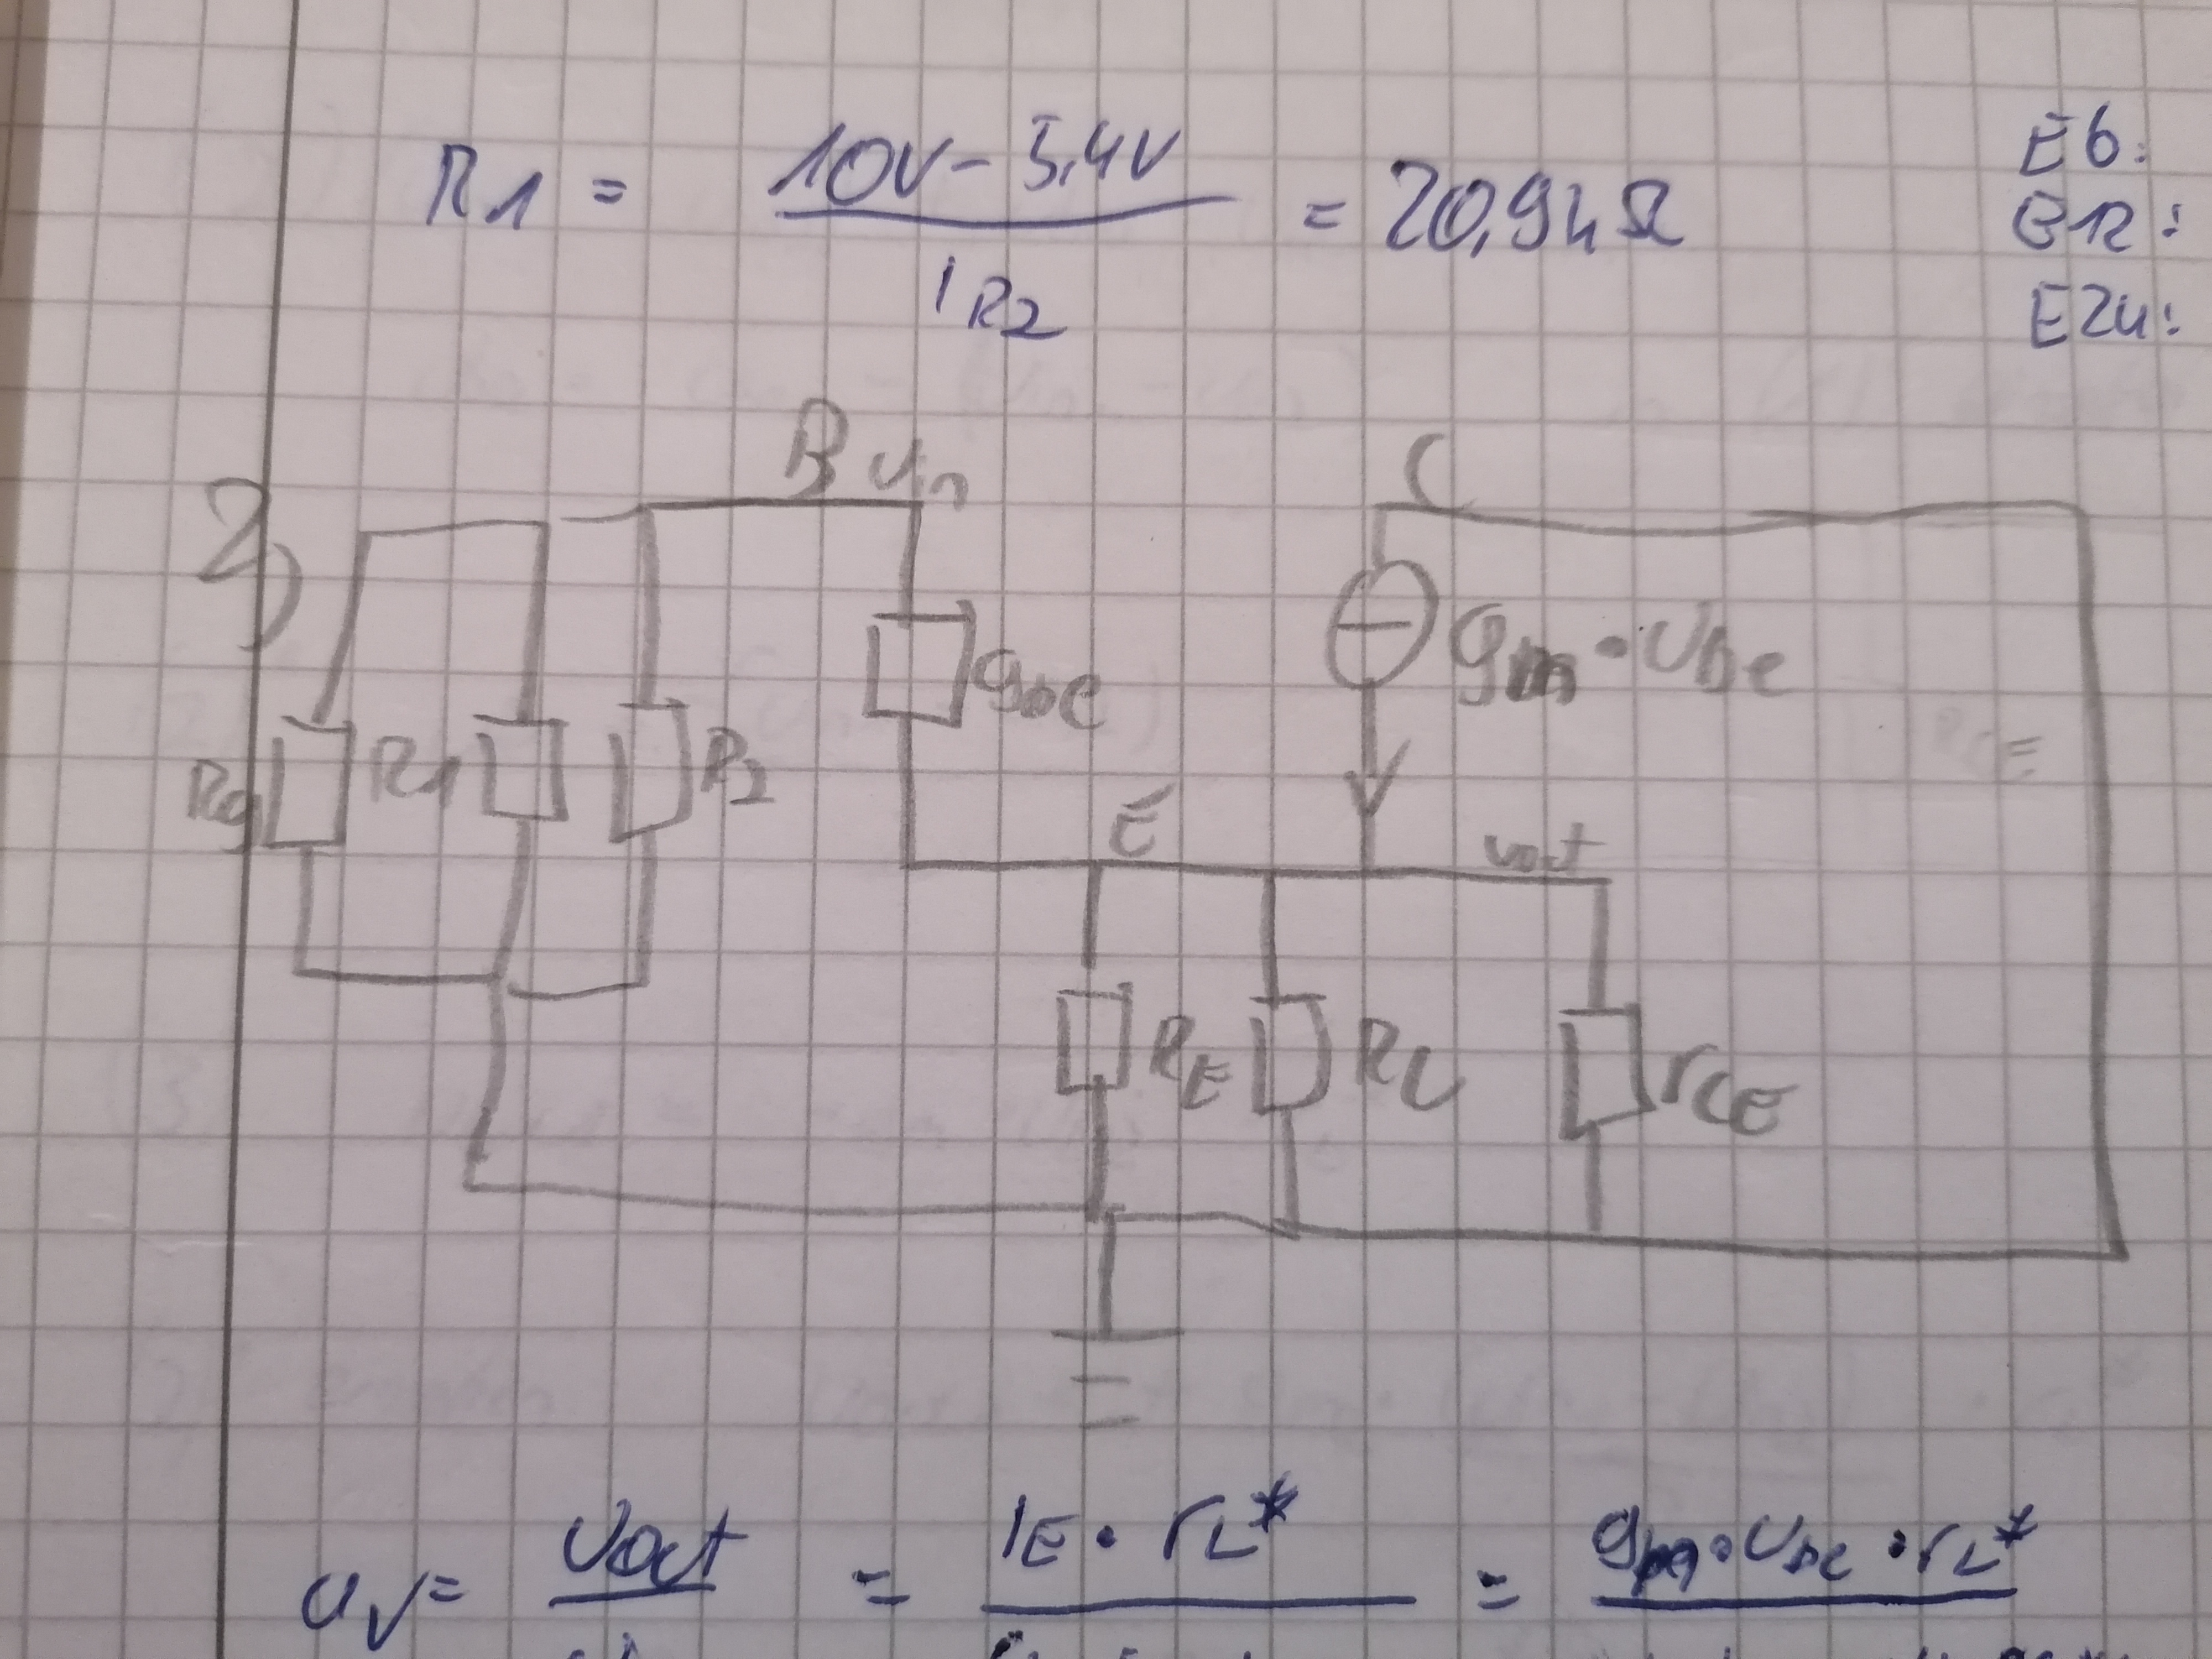 R1 = 10V - 5,4V / IR2 = 20,9kΩ
E6:
E12:
E24:
2)
B vin
C
gbe
gm · Ube
Rg R1 R2
E
vout
RE RL rCE
av = vout = IE · rL* = gm · Ube · rL*